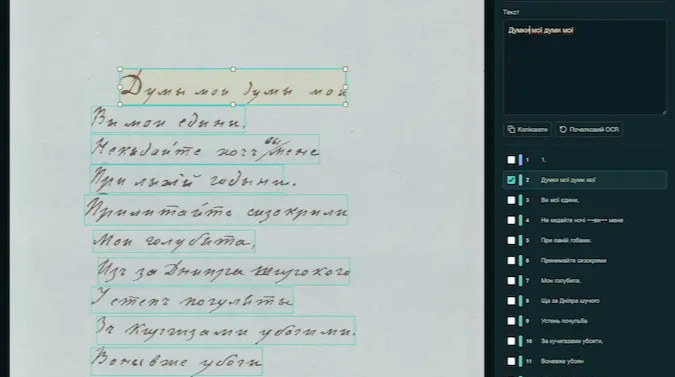 Думы мои думы мои
Вы мои едини,
Некыдайте хочь вы мене
При лыхій годыни.
Прилитайте сизокрыли
Мои голубята,
Изъ за Днипра широкого
У степъ погуляты
Зъ Киргизами убогими.
Воны вже убоги
Текст
Думки мої думи мої
Копіювати
Початковий OCR
1 1.
2 Думки мої думи мої
3 Ви мої едини,
4 Не кидайте ночі —ви— мене
5 При ланій гобами.
6 Принимайте сизокрими
7 Мон голубита,
8 Ща за Дніпра шучого
9 Устень почульба
10 За кучигазами убояти,
11 Воневже убоян